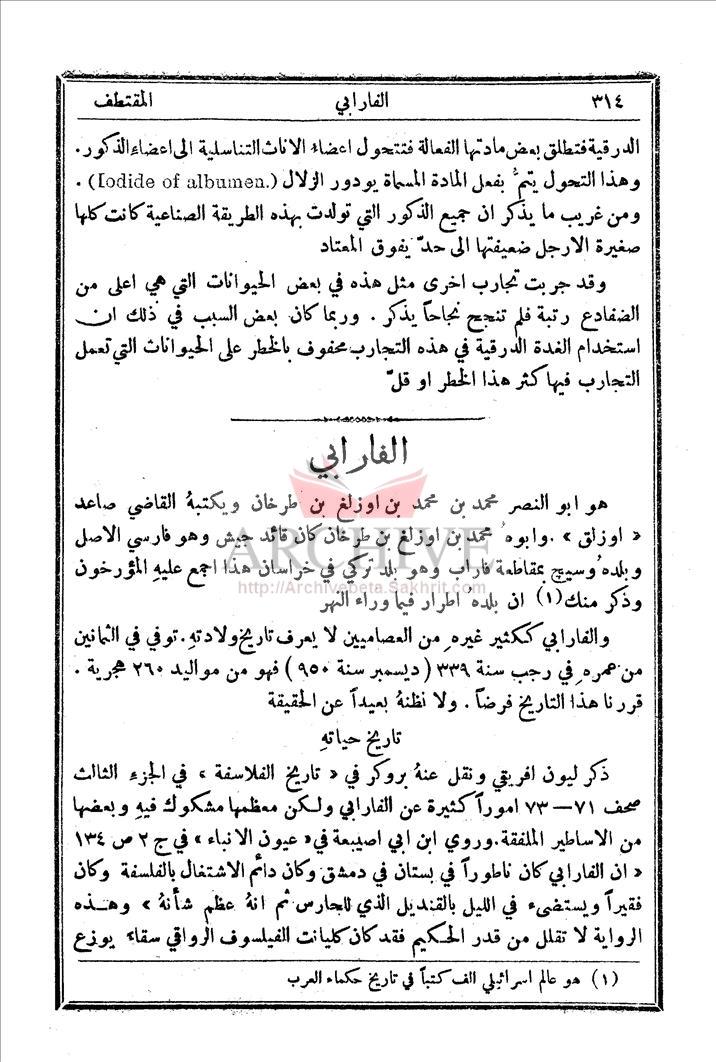 ٣١٤ الفارابي المقتطف
الدرقية فتطلق بعض مادتها الفعالة فتتحول اعضاء الاناث التناسلية الى اعضاء الذكور .
وهذا التحول يتمُّ بفعل المادة المسماة يودور الزلال (Iodide of albumen.) .
ومن غريب ما يذكر ان جميع الذكور التي تولدت بهذه الطريقة الصناعية كانت كلها
صغيرة الارجل ضعيفتها الى حدّ يفوق المعتاد
وقد جربت تجارب اخرى مثل هذه في بعض الحيوانات التي هي اعلى من
الضفادع رتبة فلم تنجح نجاحاً يذكر . وربما كان بعض السبب في ذلك ان
استخدام الغدة الدرقية في هذه التجارب محفوف بالخطر على الحيوانات التي تعمل
التجارب فيها كثر هذا الخطر او قلّ
الفارابي
ARCHIVE
http://Archivebeta.Sakhrit.com
هو ابو النصر محمد بن محمد بن اوزلغ بن طرخان ويكتبهُ القاضي صاعد
« اوزلق » . وابوهُ محمد بن اوزلغ بن طرخان كان قائد جيش وهو فارسي الاصل
وبلدهُ وسيج بمقاطعة فاراب وهو بلد تركي في خراسان هذا اجمع عليهِ المؤرخون
وذكر منك (١) ان بلده اطرار فيما وراء النهر
والفارابي ككثير غيرهِ من العصاميين لا يعرف تاريخ ولادتهِ . توفي في الثمانين
من عمرهِ في رجب سنة ٣٣٩ ( ديسمبر سنة ٩٥٠ ) فهو من مواليد ٢٦٠ هجرية .
قررنا هذا التاريخ فرضاً . ولا نظنهُ بعيداً عن الحقيقة
تاريخ حياتهِ
ذكر ليون افريقي ونقل عنهُ بروكر في « تاريخ الفلاسفة » في الجزء الثالث
صحف ٧١—٧٣ اموراً كثيرة عن الفارابي ولكن معظمها مشكوك فيهِ وبعضها
من الاساطير الملفقة . وروي ابن ابي اصيبعة في « عيون الانباء » في ج ٢ ص ١٣٤
« ان الفارابي كان ناطوراً في بستان في دمشق وكان دائم الاشتغال بالفلسفة وكان
فقيراً ويستضيء في الليل بالقنديل الذي للحارس ثم انهُ عظم شأنهُ » وهذه
الرواية لا تقلل من قدر الحكيم فقد كان كليانت الفيلسوف الرواقي سقاء يوزع
(١) هو عالم اسرائيلي الف كتباً في تاريخ حكماء العرب